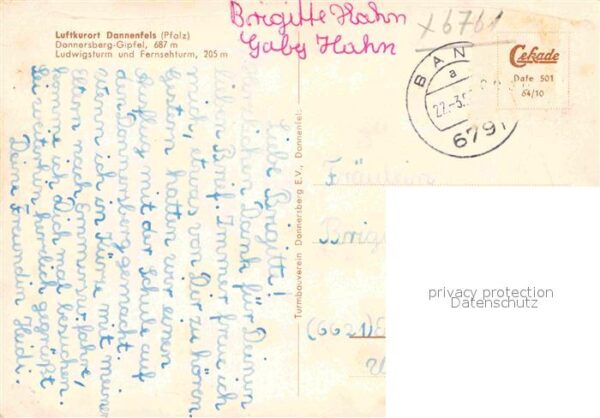 Luftkurort Dannenfels (Pfalz)
Donnersberg-Gipfel, 687 m
Ludwigsturm und Fernsehturm, 205 m
Brigitte Hahn
Gaby Hahn
x 6761
Cekade
Dafe 501
64/10
BAN
a
22.-3.
6791
Liebe Brigitte!
herzlichen Dank für Deinen
lieben Brief. Immer freue ich
mich, etwas von Dir zu hören.
Gestern hatten wir einen
Ausflug mit der Schule auf
den Donnersberg gemacht.
Wenn ich in Kürze mit meinen
Eltern nach Emmerich fahre,
komme ich Dich mal besuchen.
Sei weiterhin herzlich gegrüßt
Deine Freundin Heidi.
Turmbauverein Donnersberg E.V., Dannenfels
Fräulein
Brigi
(6621)
privacy protection
Datenschutz